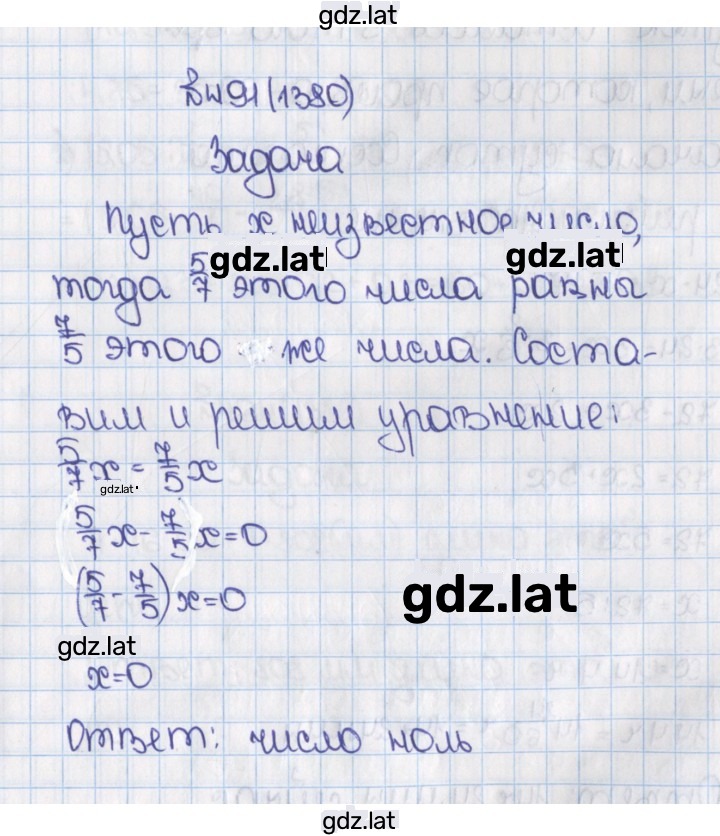 gdz.lat
(1380)
Задача
Пусть x неизвестное число,
gdz.lat gdz.lat
тогда 5/7 этого числа равны
7/5 этого же числа. Соста-
вим и решим уравнение:
5/7 x = 7/5 x
gdz.lat
5/7 x - 7/5 x = 0
(5/7 - 7/5) x = 0
gdz.lat
gdz.lat
x = 0
Ответ: число ноль
gdz.lat